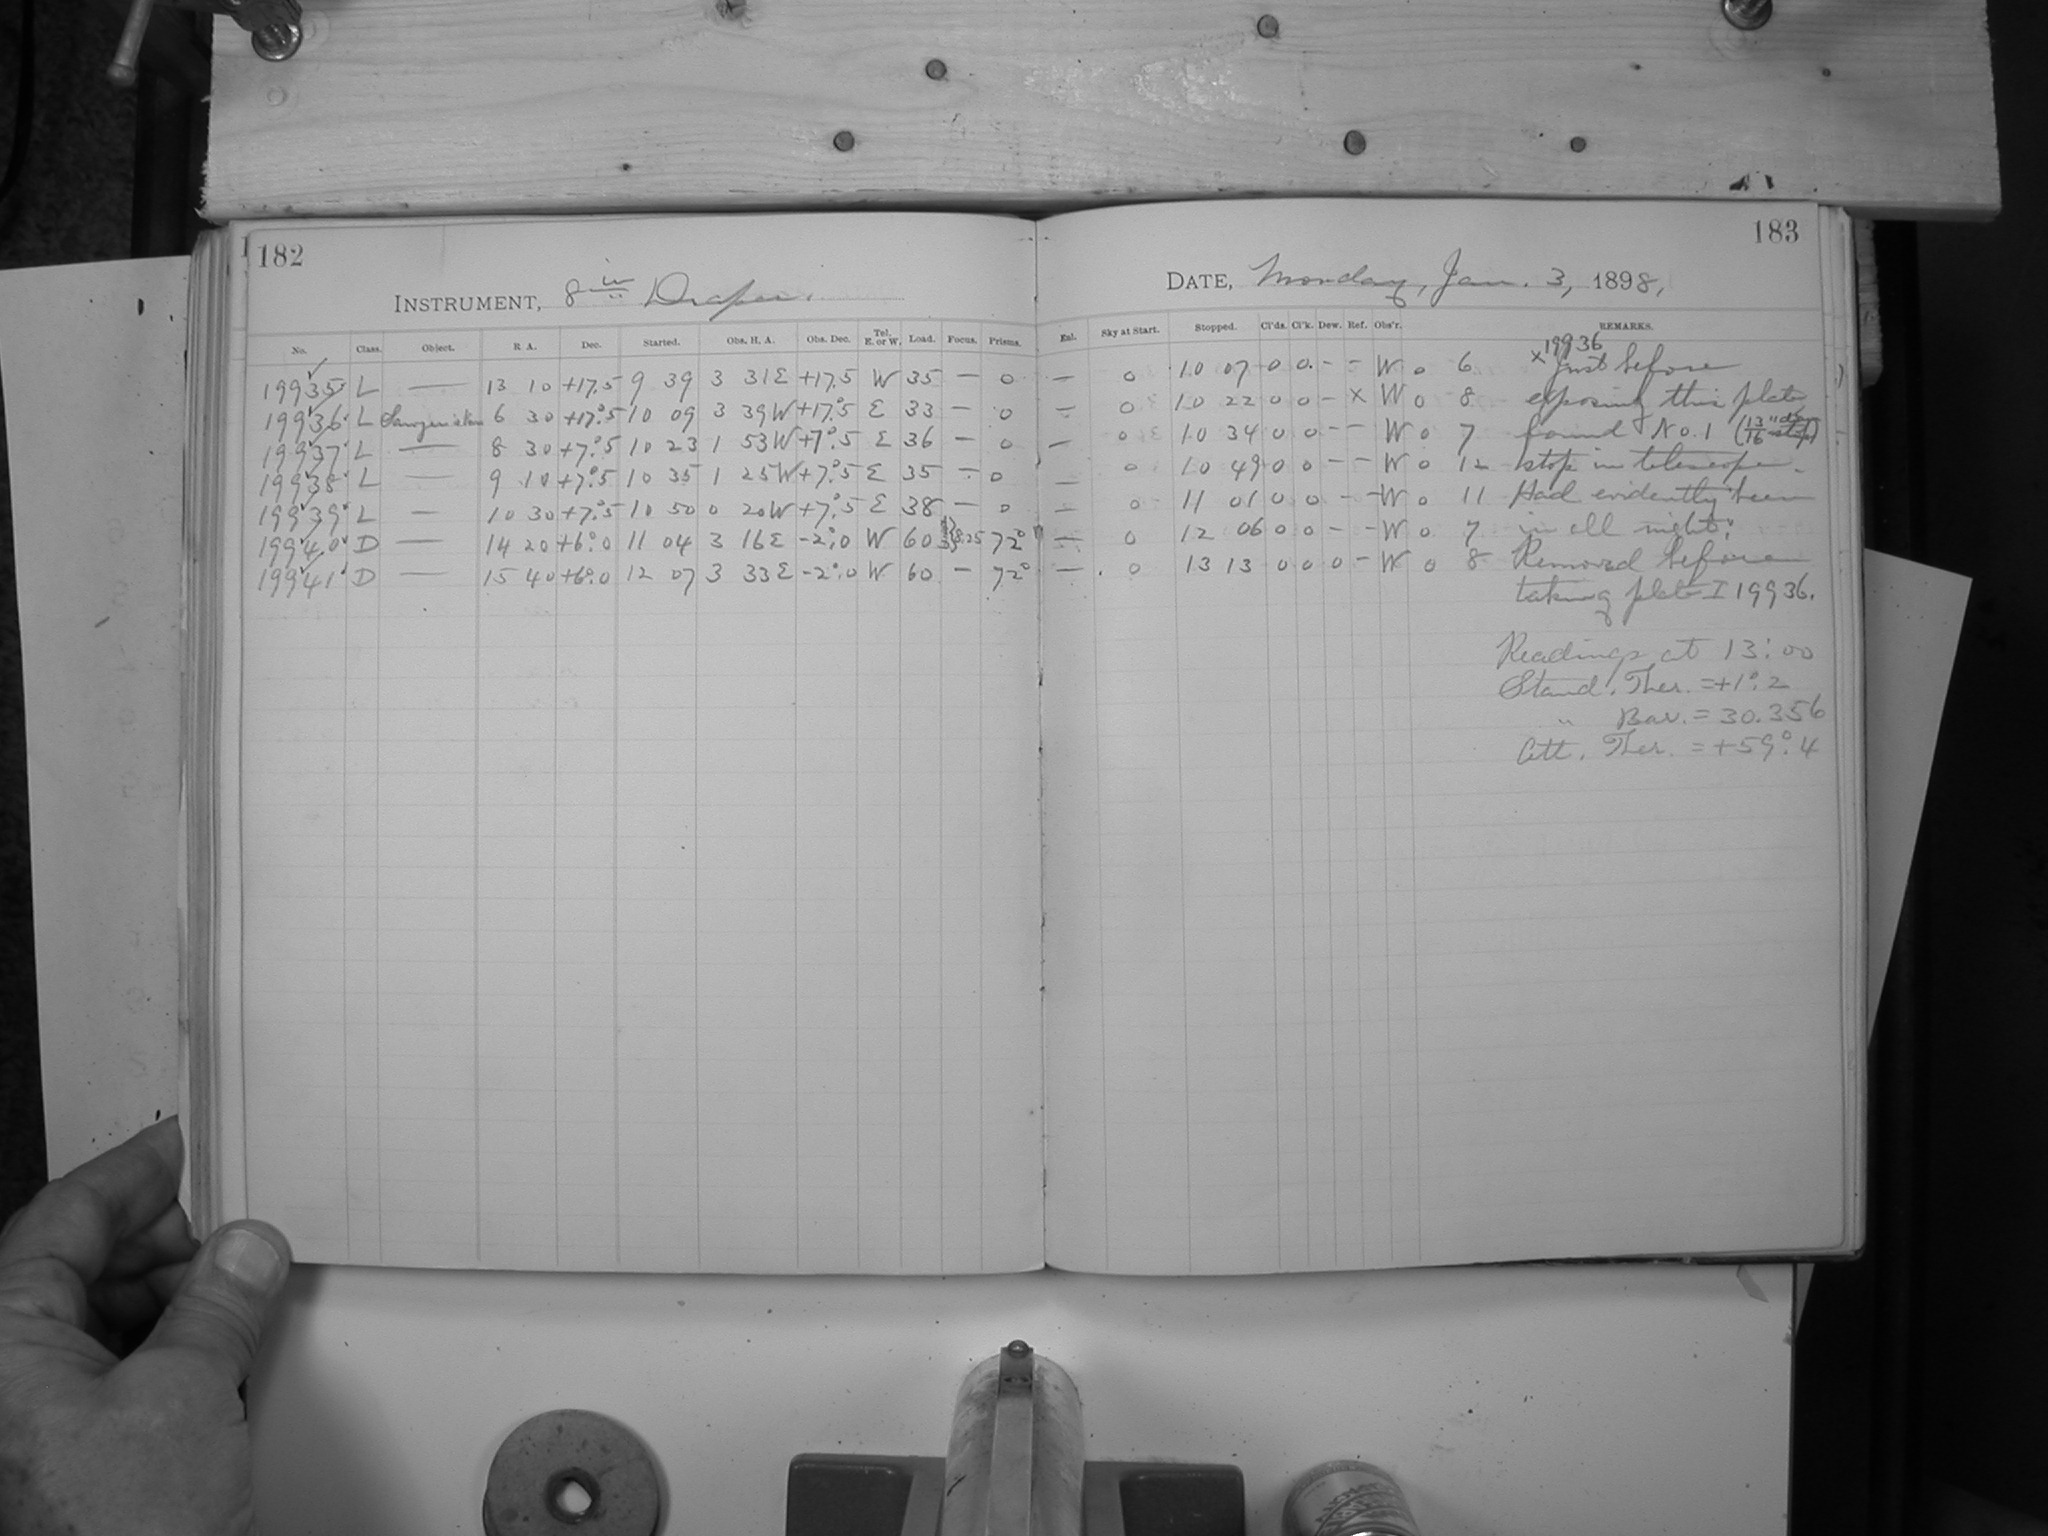 182
INSTRUMENT, 8 in Draper.
No. Class. Object. R A. Dec. Started. Obs. H. A. Obs. Dec. Tel. E. or W. Load. Focus. Prisms.
19935 L — 13 10 +17.5 9 39 3 31 E +17.5 W 35 — 0
19936 L 6 30 +17°.5 10 09 3 39 W +17°.5 E 33 — 0
19937 L — 8 30 +7°.5 10 23 1 53 W +7°.5 E 36 — 0
19938 L — 9 10 +7°.5 10 35 1 25 W +7°.5 E 35 — 0
19939 L — 10 30 +7°.5 10 50 0 20 W +7°.5 E 38 — 0
19940 D — 14 20 +6°.0 11 04 3 16 E -2°.0 W 60 8.25 72°
19941 D — 15 40 +6°.0 12 07 3 33 E -2°.0 W 60 — 72°
183
DATE, Monday, Jan. 3, 1898,
Enl. Sky at Start. Stopped. Cl'ds. Cl'k. Dew. Ref. Obs'r. REMARKS.
— 0 10 07 0 0 - - W 0 6 x 19936 Just before
— 0 10 22 0 0 - x W 0 8 exposing this plate
— 0 10 34 0 0 - - W 0 7 found No. 1 (13/16
— 0 10 49 0 0 - - W 0 12 stop in telescope.
— 0 11 01 0 0 - - W 0 11 Had evidently been
— 0 12 06 0 0 - - W 0 7 in all night.
— 0 13 13 0 0 0 - W 0 8 Removed before
taking plate I 19936.
Readings at 13:00
Stand. Ther. = +1°.2
" Bar. = 30.356
Att. Ther. = +59°.4